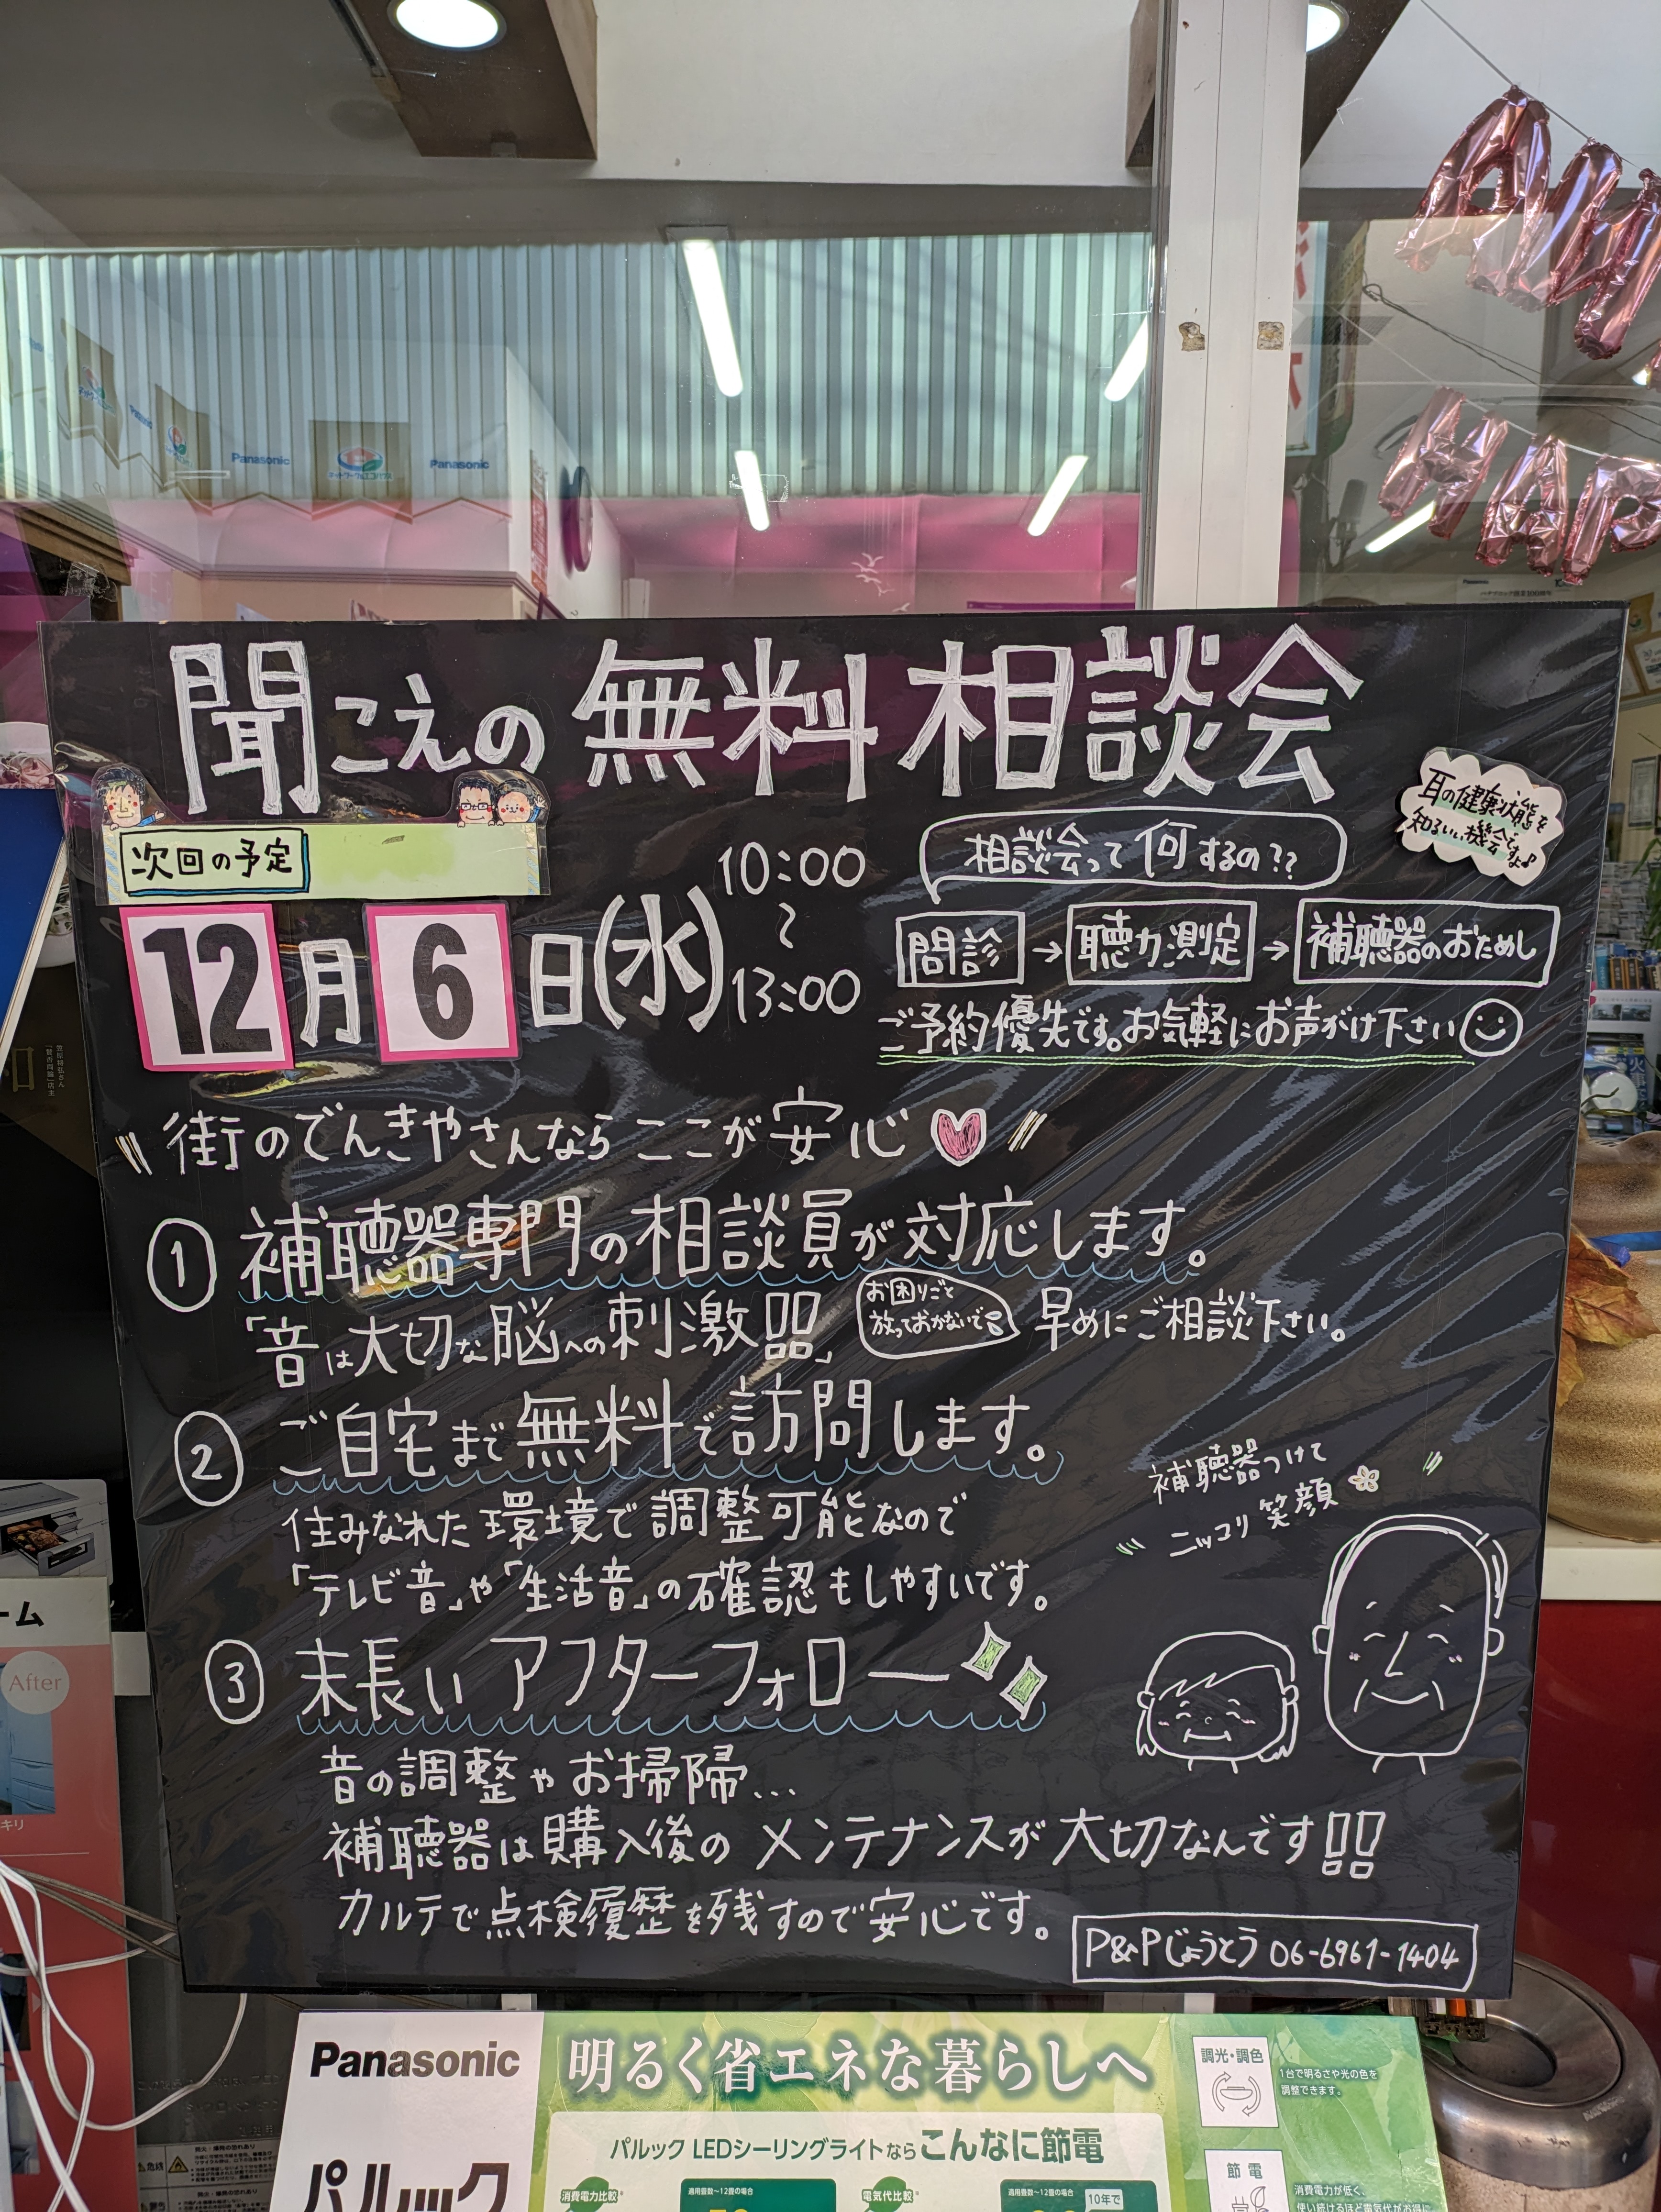 Panasonic
Panasonic
聞こえの無料相談会
耳の健康状態を
知るいい機会ですよ♪
次回の予定
12月6日(水)
10:00
〜
13:00
相談会って何するの??
問診→聴力測定→補聴器のおためし
ご予約優先です。お気軽にお声がけ下さい
街のでんきやさんならここが安心
① 補聴器専門の相談員が対応します。
「音は大切な脳への刺激!!」
お困りごと
放っておかないで
早めにご相談下さい。
② ご自宅まで無料で訪問します。
住みなれた環境で調整可能なので
「テレビ音」や「生活音」の確認もしやすいです。
補聴器つけて
ニッコリ笑顔
③ 末長いアフターフォロー
音の調整やお掃除...
補聴器は購入後のメンテナンスが大切なんです!!
カルテで点検履歴を残すので安心です。
P&Pじょうとう 06-6961-1404
After
Panasonic
明るく省エネな暮らしへ
パルック LEDシーリングライトならこんなに節電
パルック
消費電力比較
適用畳数〜12畳の場合
電気代比較
適用畳数〜12畳の場合
10年で
調光・調色
1台で明るさや光の色を
調整できます。
節電
消費電力が低く、